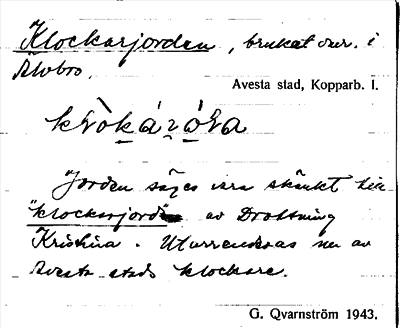 Klockarjorden, brukat omr. i
Avesta stad, Kopparb. l.
Jorden säges vara skänkt till
"klockarjord" av Drottning
Kristina. Utarrenderas nu av
Avesta stads klockare.
G. Qvarnström 1943.